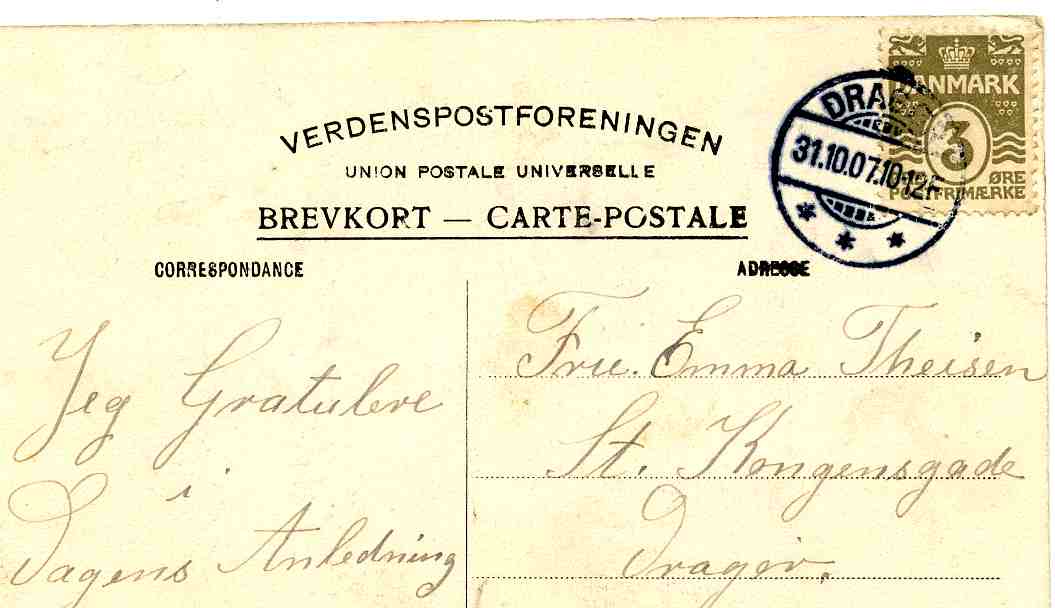 VERDENSPOSTFORENINGEN
UNION POSTALE UNIVERSELLE
BREVKORT — CARTE-POSTALE
CORRESPONDANCE
ADRESSE
DANMARK
3
ØRE
POSTFRIMÆRKE
31.10.07.10-12F
Jeg Gratulere
i
Dagens Anledning
Frie. Emma Theisen
St. Kongensgade
Dragör.